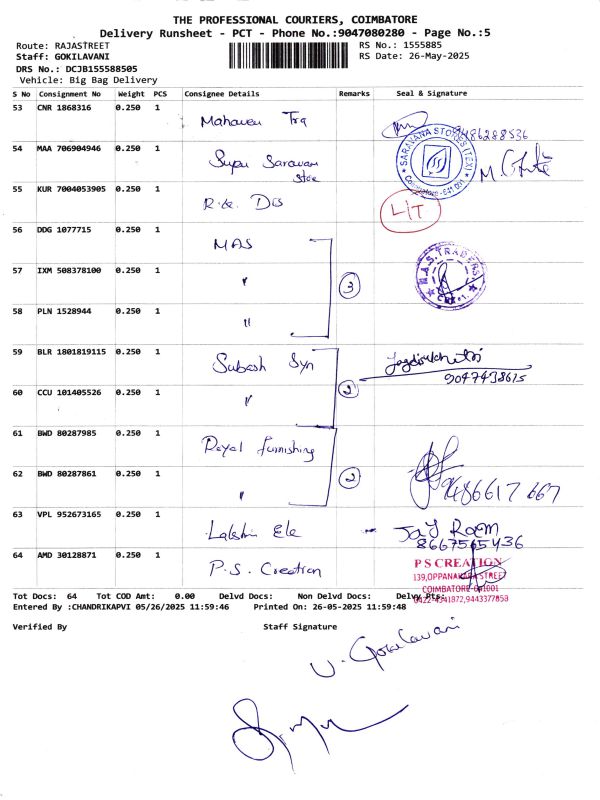 THE PROFESSIONAL COURIERS, COIMBATORE
Delivery Runsheet - PCT - Phone No.:9047080280 - Page No.:5
Route: RAJASTREET RS No.: 1555885
Staff: GOKILAVANI RS Date: 26-May-2025
DRS No.: DCJB155588505
Vehicle: Big Bag Delivery
S No Consignment No Weight PCS Consignee Details Remarks Seal & Signature
53 CNR 1868316 0.250 1 9486288536
54 MAA 706904946 0.250 1 Super Saravan
SARAVANA STORES (TEX)
Coimbatore - 641 001
55 KUR 7004053905 0.250 1
56 DDG 1077715 0.250 1 MAS
M.A.S. TRADERS
57 IXM 508378100 0.250 1 " 3
58 PLN 1528944 0.250 1 "
59 BLR 1801819115 0.250 1 Subash Syn
9047438615
60 CCU 101405526 0.250 1 " 2
61 BWD 80287985 0.250 1 Royal Furnishing
62 BWD 80287861 0.250 1 " 2 9486617667
63 VPL 952673165 0.250 1 Lakshmi Ele Jay Ram
8667565436
64 AMD 30128871 0.250 1 P.S. Creation
P S CREATION
139,OPPANAKARA STREET
COIMBATORE-641001
0422-4341872,9443377858
Tot Docs: 64 Tot COD Amt: 0.00 Delvd Docs: Non Delvd Docs: Delvy Pts:
Entered By :CHANDRIKAPVI 05/26/2025 11:59:46 Printed On: 26-05-2025 11:59:48
Verified By Staff Signature
V. Gokilavani